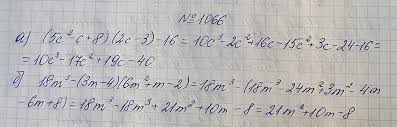 №1066
а) (5c²-c+8)(2c-3)-16=10c³-2c²+16c-15c²+3c-24-16=
=10c³-17c²+19c-40
б) 18m³-(3m-4)(6m²+m-2)=18m³-(18m³-24m²+3m²-4m
-6m+8)=18m³-18m³+21m²+10m-8=21m²+10m-8